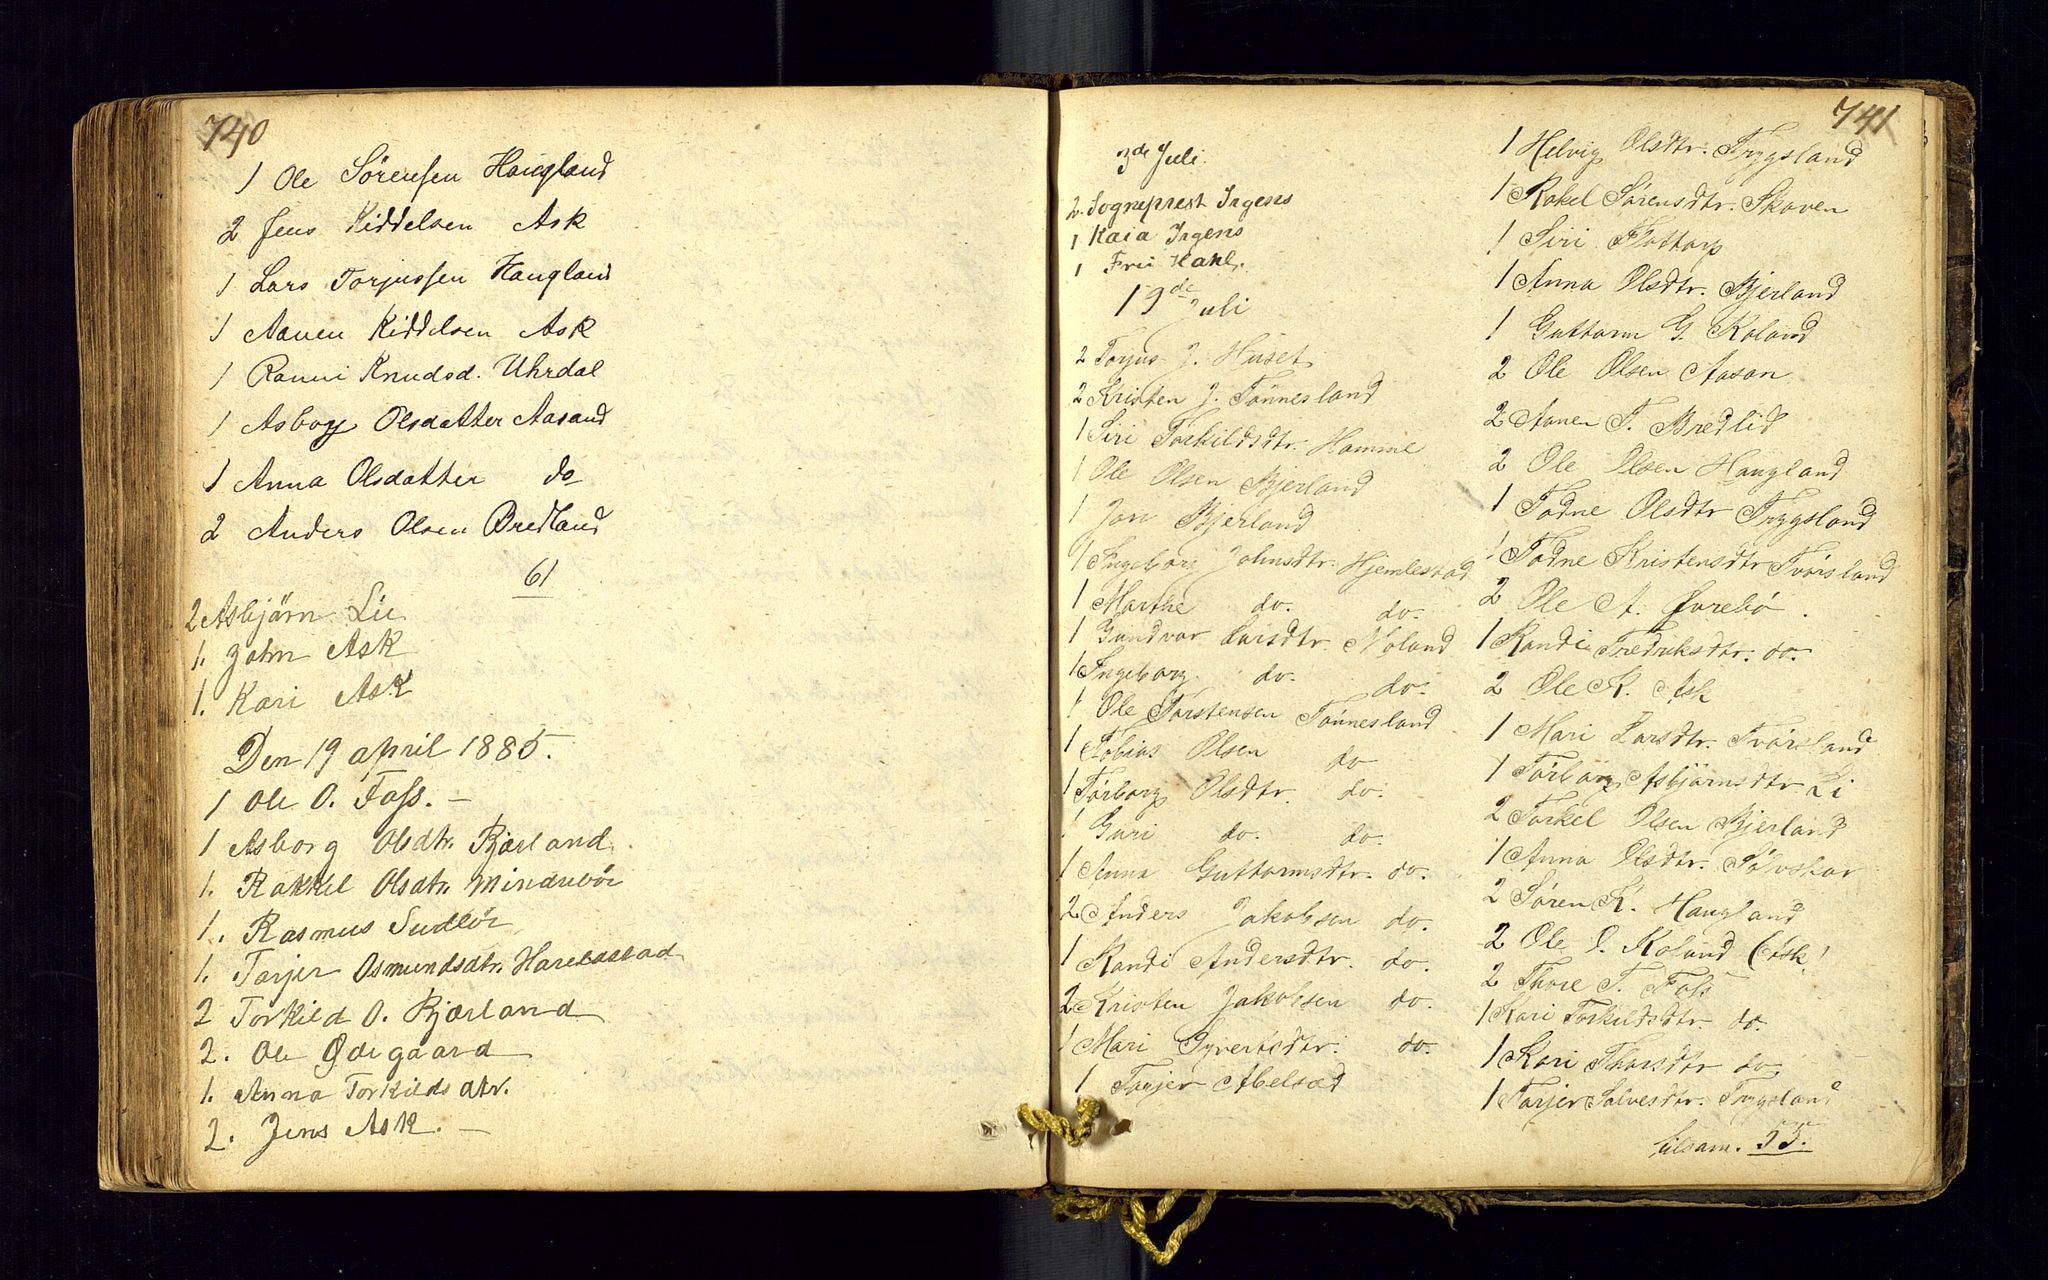 740
1 Ole Sörensen Haugland
2 Jens Kiddelsen Ask
1 Lars Torjussen Haugland
1 Aanen Kiddelsen Ask
1 Ranni Knudsd. Uhrdal
1 Asborg Olsdatter Aasand
1 Anna Olsdatter do
2 Anders Olsen Bredland
61
2 Asbjörn Lie
1. John Ask
1. Kari Ask
Den 19 april 1885.
1 Ole O. Foss. —
1 Asborg Olsdtr. Bjærland.
1. Rakkel Olsdtr. Mindrebör
1. Rasmus Sudbör
1. Tarjer Osmundsdtr. Harelastad
2 Torkild O. Bjærland
2. Ole Ødegaard
1. Anna Torkilds dtr.
2. Jens Ask. —
741
3de Juli.
2. Sogneprest Irgens
1 Kaia Irgens
1 Frü Hakl.
19de Juli
2 Torjus J. Huset
2 Kristen J. Tönnesland
1 Siri Torkildsdtr. Homme
1 Ole Olsen Bjerland
1 Jon Bjerland
1 Ingeborg Johnsdtr. Hjemlestad
1 Marthe do. do.
1 Gundvor Larsdtr. Moland
1 Ingeborg do. do.
1 Ole Torstensen Tönnesland
1 Tobias Olsen do
1 Torborg Olsdtr. do.
1 Guri do. do.
1 Anna Guttormsdtr. do.
2 Anders Jakobsen do.
1 Randi Andersdtr. do.
2 Kristen Jakobsen do.
1 Mari Syvertsdtr. do.
1 Tarjer Abelsæd
1 Helvig Olsdtr. Trygsland
1 Rakel Sörensdtr. Skoven
1 Siri Flottorp
1 Anna Olsdtr. Bjerland
1 Guttorm G. Roland
2 Ole Olsen Aasan
2 Aanen T. Bredlid
2 Ole Olsen Haugland
1 Todne Olsdtr Trygsland
1 Todne Kristensdtr Tvorsland
2 Ole A. Øvrebö.
1 Randi Fredriksdtr. do.
2 Ole K. Ask
1 Mari Larsdtr. Tvorsland
1 Torborg Asbjörnsdtr. Li
2 Torkel Olsen Bjerland
1 Anna Olsdtr. Sölvskar
2 Sören K. Haugland
2 Ole O. Roland (Ask)
2 Thore T. Foss
1 Kari Torkildsdtr. do.
1 Kari Thorsdtr do.
1 Tarjer Salvesdtr. Trygsland
tilsam. 55.